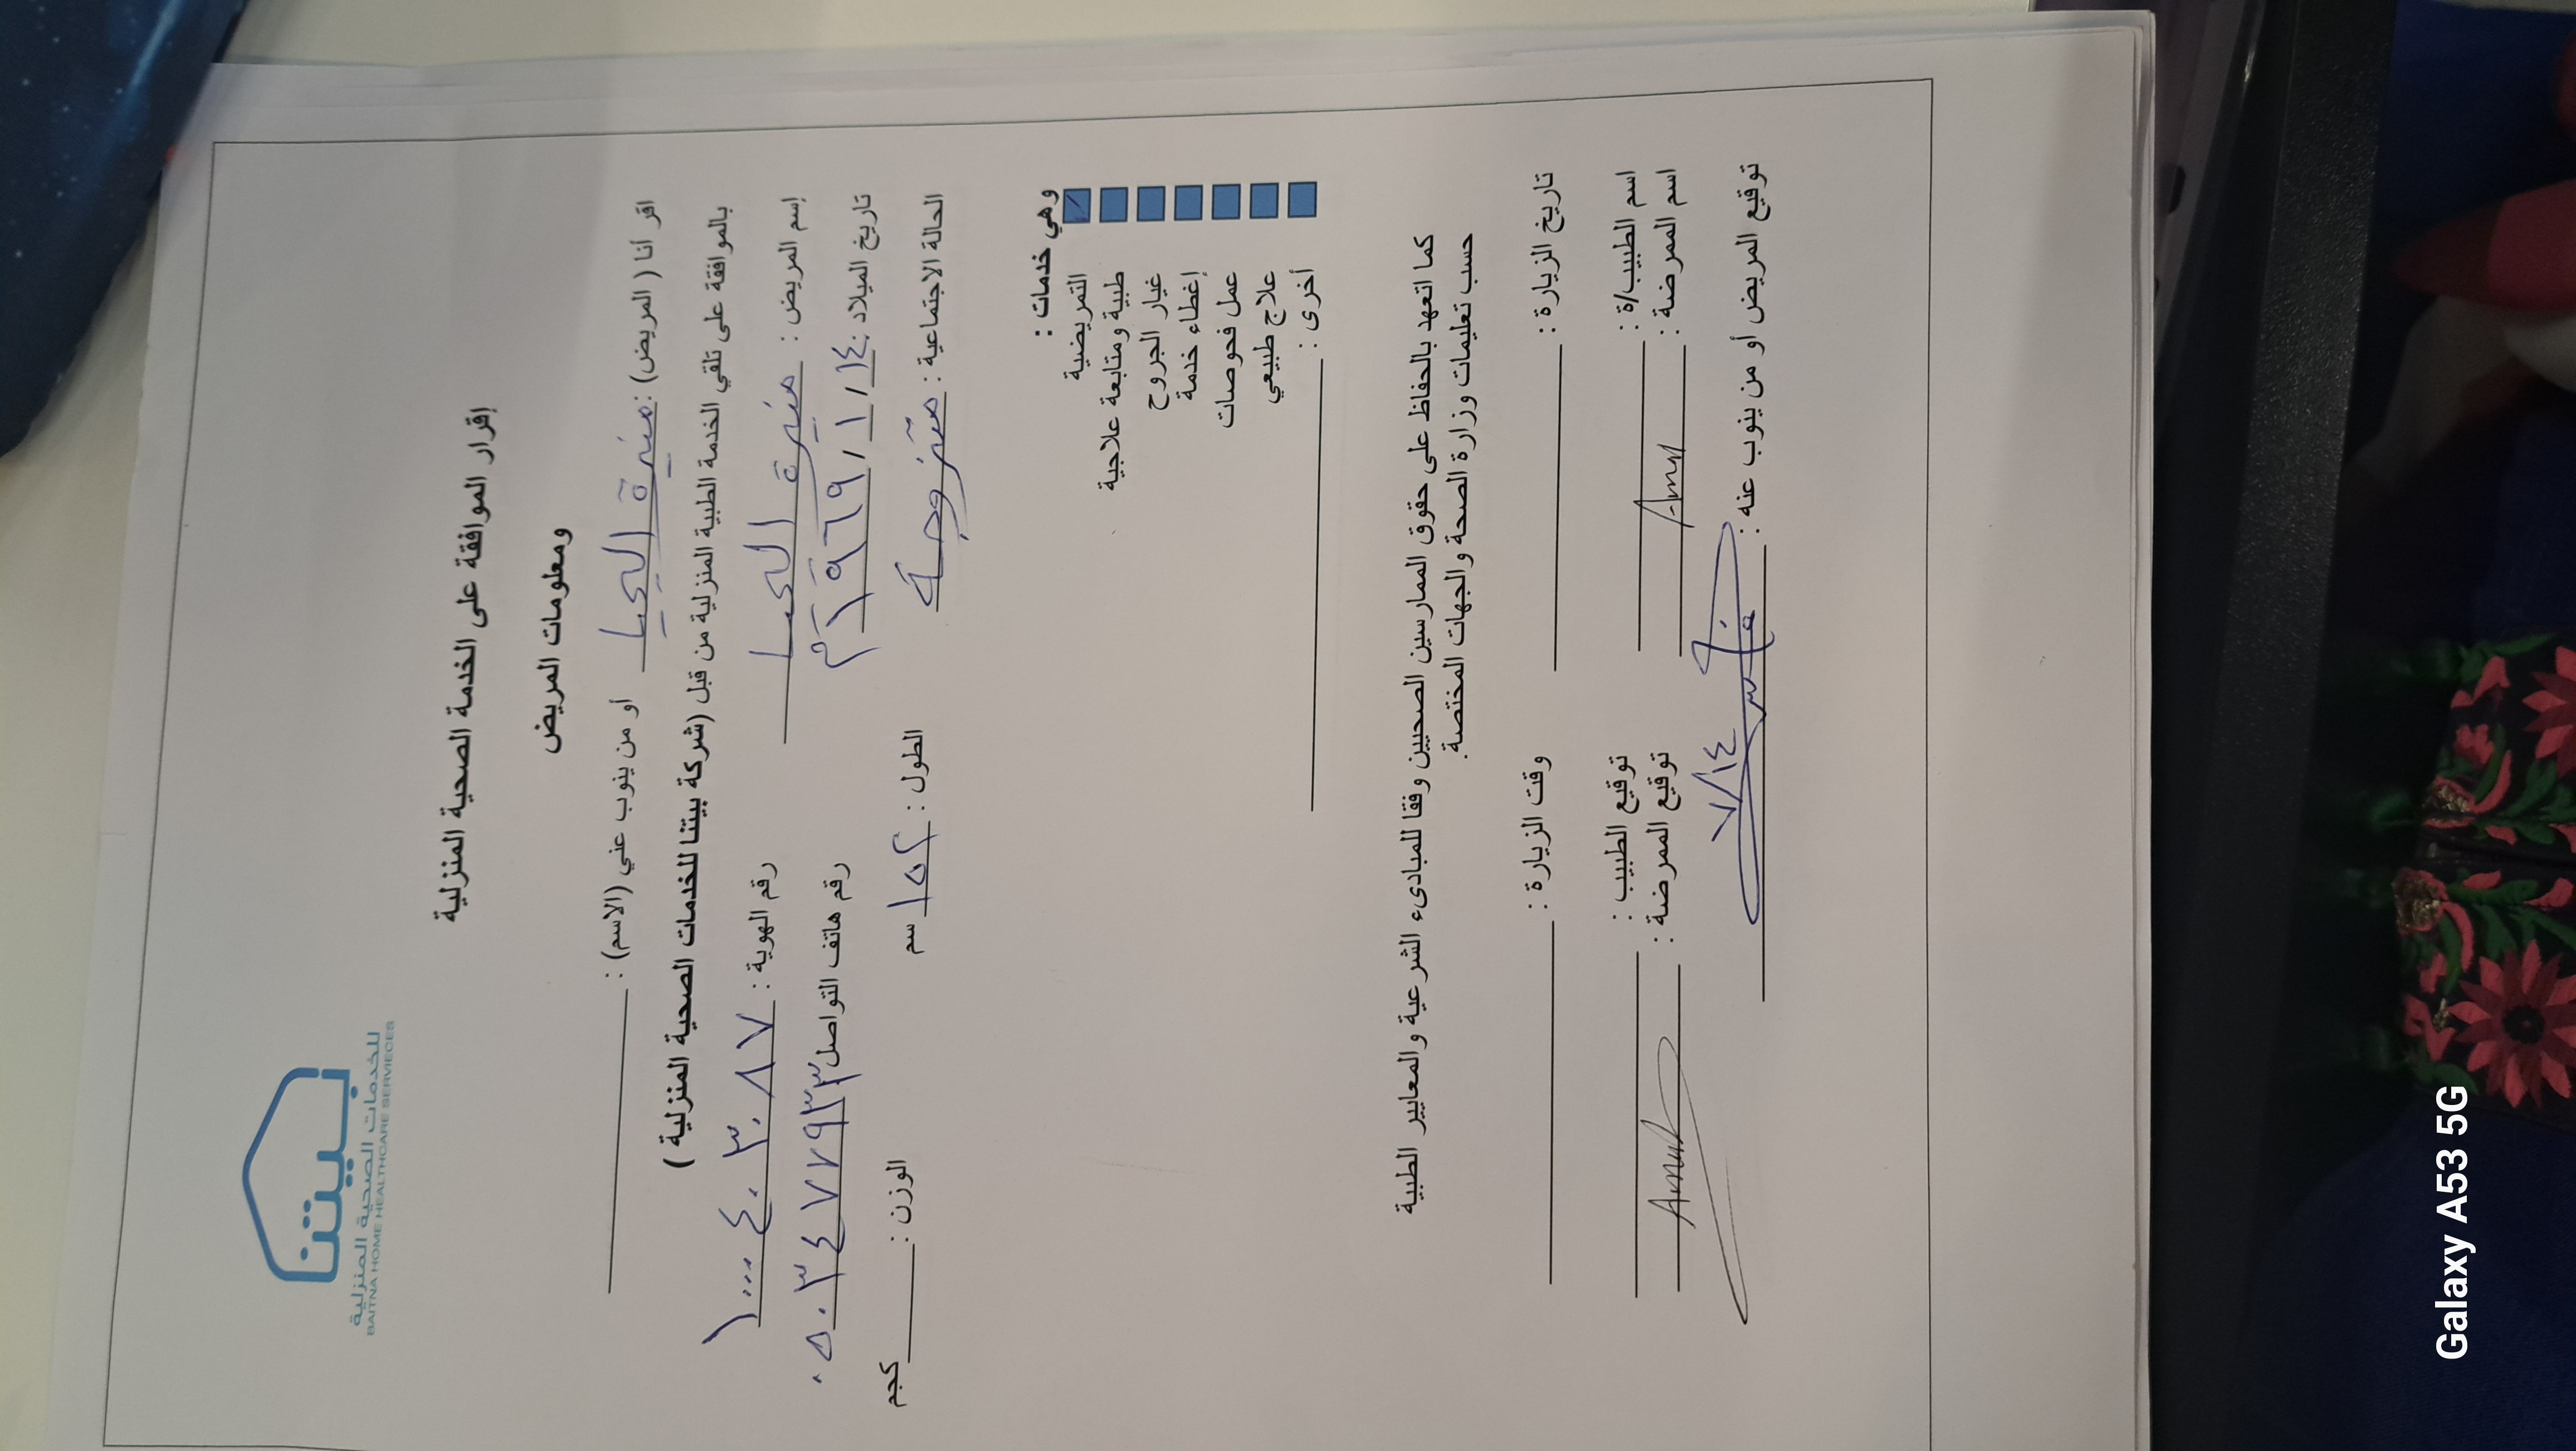 بيتنا
للخدمات الصحية المنزلية
BAITNA HOME HEALTHCARE SERVIECES
إقرار الموافقة على الخدمة الصحية المنزلية
ومعلومات المريض
اقر أنا ( المريض) : منيرة أو من ينوب عني (الاسم) :
بالموافقة على تلقي الخدمة الطبية المنزلية من قبل (شركة بيتنا للخدمات الصحية المنزلية )
إسم المريض : منيرة رقم الهوية : ١٠٠٠٤٠٣٠٨٧
تاريخ الميلاد : ١٤ / ١ / ١٩٦٩م رقم هاتف التواصل ٠٥٠٣٤٧٧٩٣٣
الحالة الاجتماعية : متزوجة الطول : ١٥٢ سم الوزن : كجم
وهي خدمات :
التمريضية
طبية ومتابعة علاجية
غيار الجروح
إغطاء خدمة
عمل فحوصات
علاج طبيعي
أخرى :
كما اتعهد بالحفاظ على حقوق الممارسين الصحيين وفقا للمبادىء الشرعية والمعايير الطبية
حسب تعليمات وزارة الصحة والجهات المختصة.
تاريخ الزيارة : وقت الزيارة :
اسم الطبيب/ة : توقيع الطبيب :
اسم الممرضة : توقيع الممرضة :
توقيع المريض أو من ينوب عنه : ٧/١٤
Galaxy A53 5G